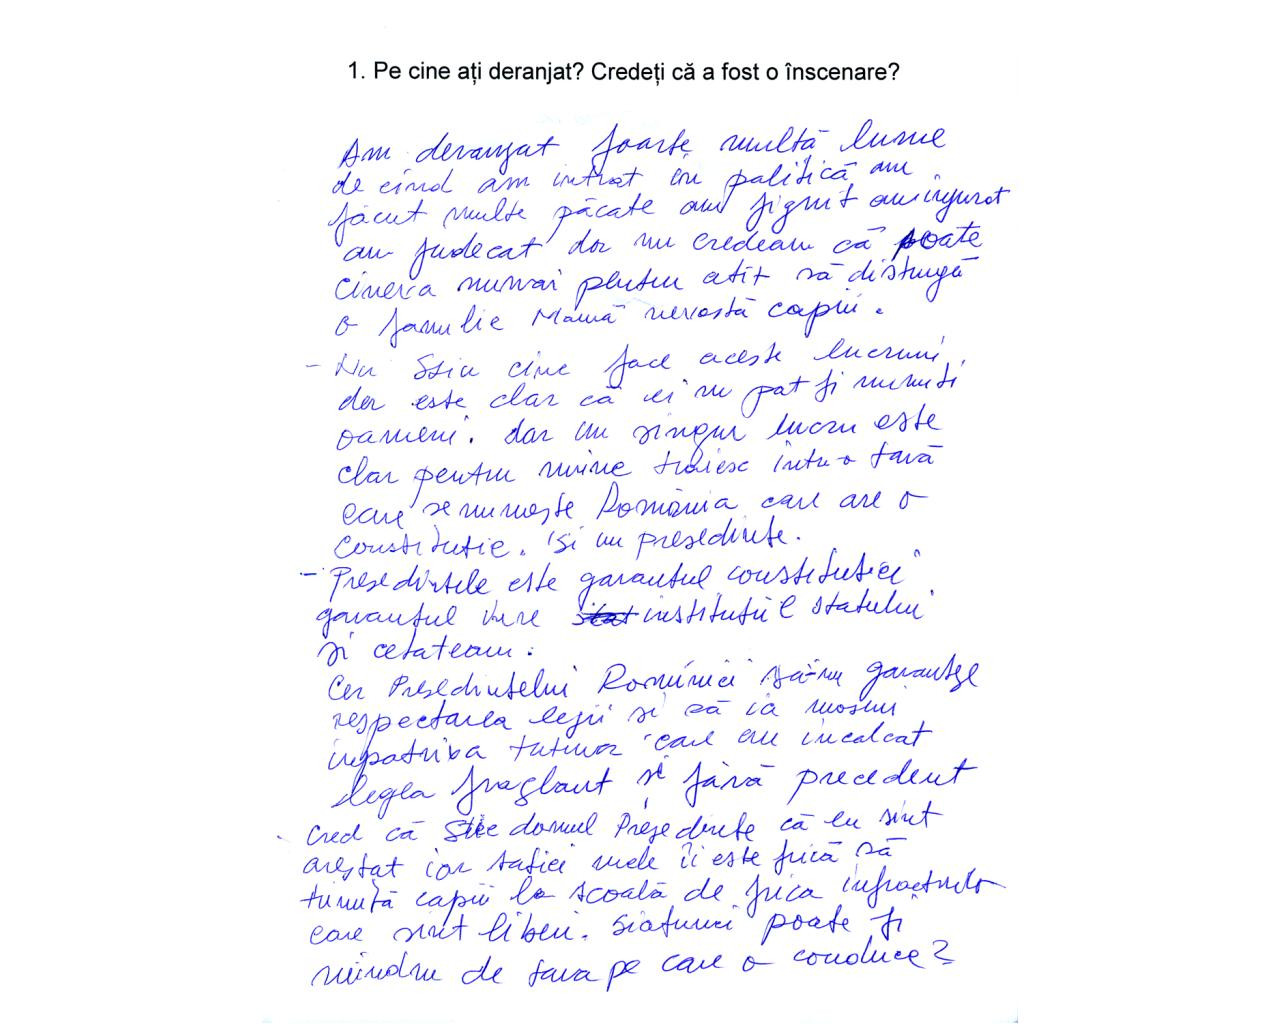 1. Pe cine ați deranjat? Credeți că a fost o înscenare?
Am deranjat foarte multă lume
de cînd am intrat în politică am
făcut multe păcate am jignit am injurat
am judecat dar nu credeam că poate
cineva numai pentru atît să distrugă
o familie Mamă nevastă copii.
- Nu Stiu cine face aceste lucruri,
dar este clar că ei nu pot fi numiti
oameni. dar un singur lucru este
clar pentru mine trăiesc într-o tară
care se numește România care are o
constitutie. Si un presedinte.
- Presedintele este garantul constitutiei
garantul intre institutiile statului
si cetateam.
Cer Presedintelui Romîniei să-mi garanteze
respectarea legii si să ia măsuri
inpotriva tuturor care au incalcat
legea fraglant si fără precedent
Cred că Stie domnul Președinte că eu sînt
arestat iar sotiei mele îi este frică să
trimită copii la scoală de frica infractorilor
care sînt liberi. Si atunci poate fi
mîndru de tara pe care o conduce?